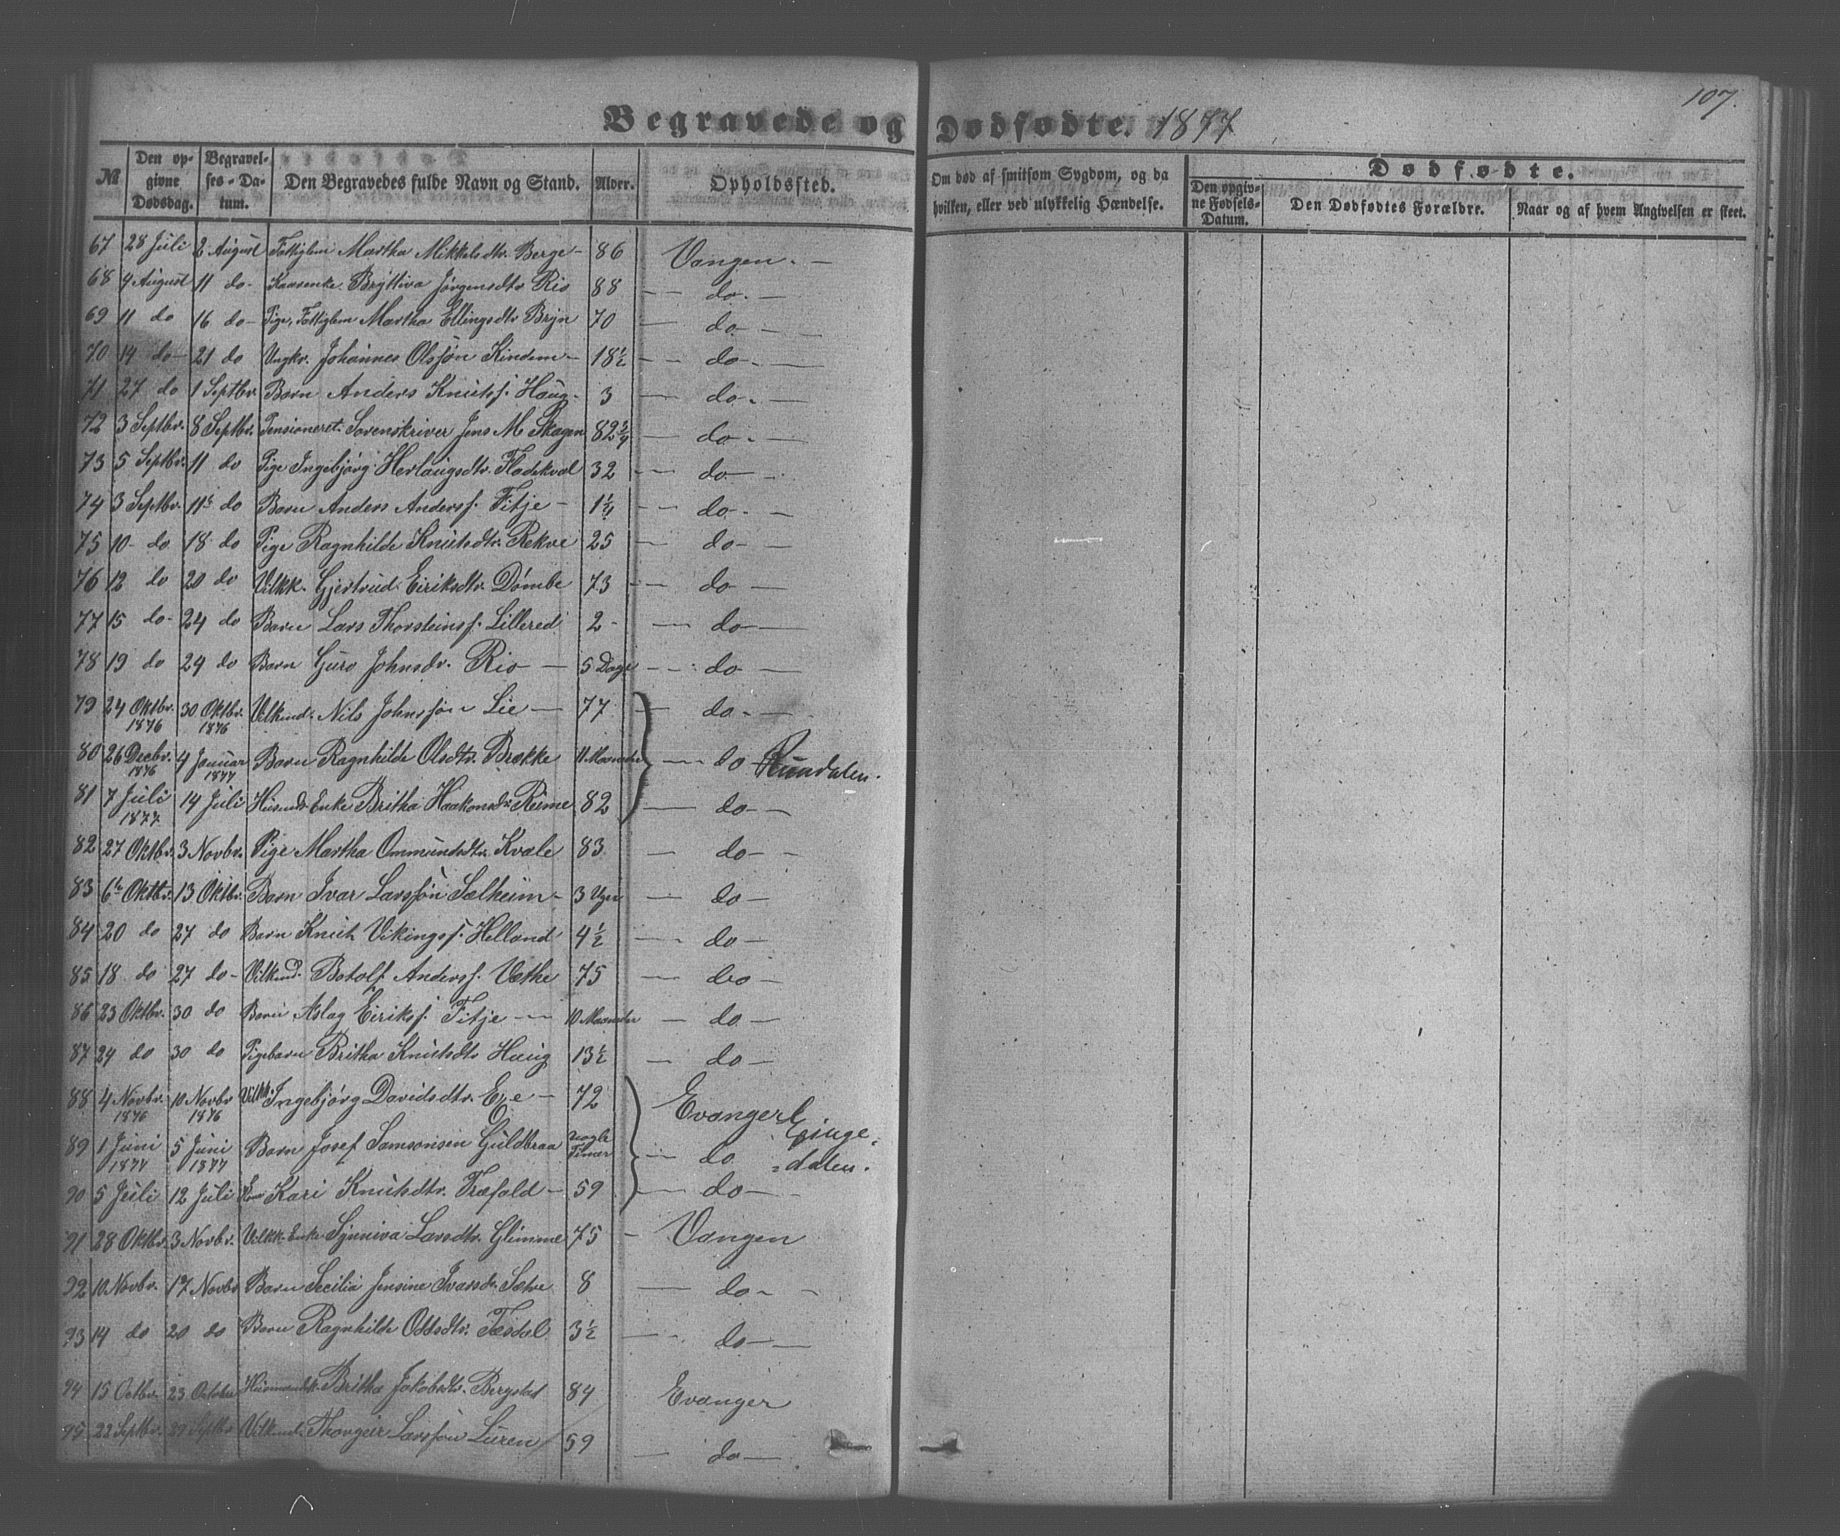 107.
Begravede og Dødfødte. 1877
№ Den opgivne Dødsdag. Begravelses-Datum. Den Begravedes fulde Navn og Stand. Alder. Opholdssted. Om død af smitsom Sygdom, og da hvilken, eller ved ulykkelig Hændelse. Dødfødte. Den opgivne Fødsels-Datum. Den Dødfødtes Forældre. Naar og af hvem Angivelsen er skeet.
67 28 Juli 2 August Fattiglem Martha Mikkelsdtr. Berge - 86 Vangen. -
68 4 August 11 do - Kaarenke. Bryttiva Jørgensdtr Rio 88 - do. -
69 11 do 16 do - Pige, Fattiglem Martha Ellingsdtr Bryn 70 - do - -
70 14 do - 21 do Ungkr. Johannes Olssøn Kindem - 18½ - do - -
71 27 do 1 Septbr. Barn Anders Knutsf. Haug - 3 - do. -
72 3 Septbr. 8 Septbr. Pensioneret. Sorenskriver Jens M Skagen 82¾ - do. -
73 5 Septbr. 11 do Pige Ingebjørg Herlaugsdtr. Fladekval 32 - do - -
74 3 Septbr. 11 do Barn Anders Andersf. Fitje - 1¼ - do. -
75 10 - do 18 do Pige Ragnhilde Knutsdtr. Rekve 25 - do - -
76 12 do 20 do Vilkk. Gjertrud Eiriksdtr. Dømbe 73 - do -
77 15 do - 24 do Barn Lars Thorsteinsf. Lillered 2 - - do -
78 19 do 24 do Barn Guro Johnsdr. Rio - 5 Dage - do -
79 24 Oktbr. 1876 30 Oktbr. 1876 Vilkund. Nils Johnssøn Lie - 77 - do. -
80 26 Decbr. 1876 4 Januar 1877 Barn Ragnhilde Olsdtr. Brekke 11 Maaneder - do Rundalen.
81 7 Juli 1877 14 Juli Husmds Enke Britha Haakonsdtr Reime 82 - do -
82 27 Oktbr. 3 Novbr. Pige Martha Ommundsdtr. Kvale 83. - do - -
83 6te Oktbr. 13 Oktbr. Barn Ivar Larssøn Sælheim - 3 Uger - do -
84 20 do 27 do Barn Knut Vikingsf. Helland 4½ - do -
85 18 do 27 do - Vilkund. Botolf Andersf. Vethe 75 - do -
86 23 Oktbr. 30 do Barn Aslag Eiriksf. Fitje - - 10 Maaneder - do -
87 24 do 30 do Pigebarn Britha Knutsdtr Haug 13½ - do -
88 4 Novbr. 1876 10 Novbr 1876 Vilkk. Ingebjørg Davidsdtr. Eve - 72 Evanger
89 1 Juni 1877 5 Juni 1877 Barn Josef Samsonsen Guldbraa nogle Timer - do = dalen.
90 5 Juli 12 Juli Kari Knutsdtr. Træfald - 59 - do -
91 28 Oktbr. 3 Novbr. Vilkk. Enke Synniva Larsdtr. Glimme 75 - Vangen
92 10 Novbr. 17 Novbr Barn Secilia Jensine Ivarsdr. Sætve 8 - do - -
93 14 do 20 do Barn Ragnhilde Oddsdtr. Tesdal 3½ - do -
94 15 Octbr. 23 October Husmandsk. Britha Jakobsdtr. Bergstad 84 Evanger
95 22 Septbr. 29 Septbr Vilkund. Thorgeir Larssøn Luren 59 - do -